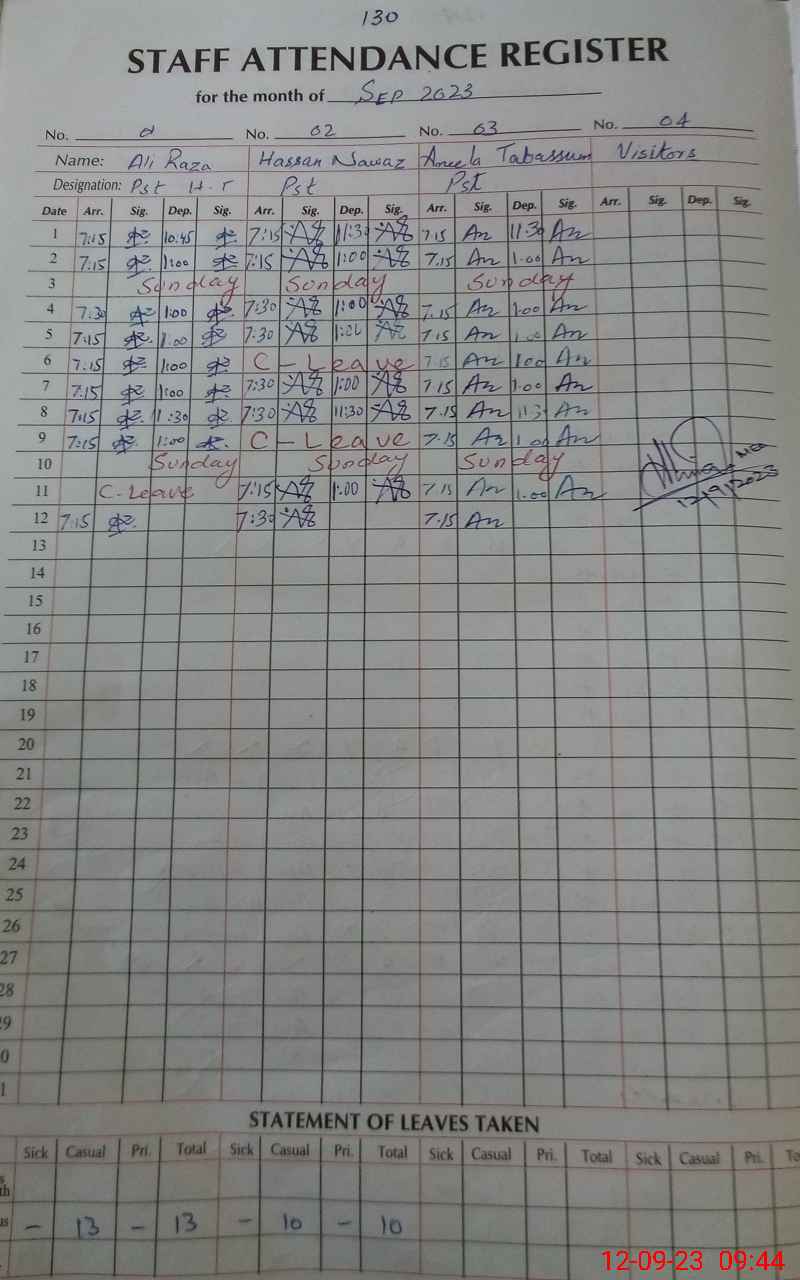 130
STAFF ATTENDANCE REGISTER
for the month of SEP 2023
No. No. 02 No. 03 No. 04
Name: Ali Raza Hassan Nawaz Aneela Tabassum Visitors
Designation: Pst H.T Pst Pst
Date Arr. Sig. Dep. Sig. Arr. Sig. Dep. Sig. Arr. Sig. Dep. Sig. Arr. Sig. Dep. Sig.
1 7:15 10:45 7:15 11:30 7.15 An 11:30 An
2 7:15 1:00 7:15 1:00 7.15 An 1.00 An
3 Sunday Sunday Sunday
4 7:30 1:00 7:30 1:00 7.15 An 1.00 An
5 7:15 1:00 7:30 1:00 7.15 An 1.00 An
6 7:15 1:00 C-Leave 7.15 An 1.00 An
7 7:15 1:00 7:30 1:00 7.15 An 1.00 An
8 7:15 11:30 7:30 11:30 7.15 An 11.30 An
9 7:15 1:00 C-Leave 7.15 An 1.00 An
10 Sunday Sunday Sunday
11 C-Leave 7:15 1:00 7.15 An 1.00 An 12/9/2023
12 7:15 7:30 7.15 An
13
14
15
16
17
18
19
20
21
22
23
24
25
26
27
28
29
0
1
STATEMENT OF LEAVES TAKEN
Sick Casual Pri. Total Sick Casual Pri. Total Sick Casual Pri. Total Sick Casual Pri. To
th
us – 13 – 13 – 10 – 10
12-09-23 09:44